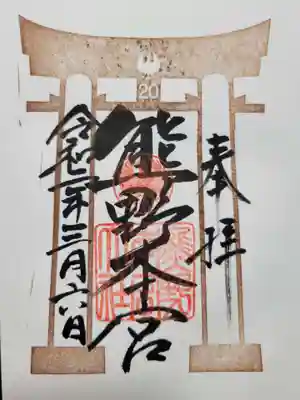 奉拝
熊野本宮
令和二年三月六日
20